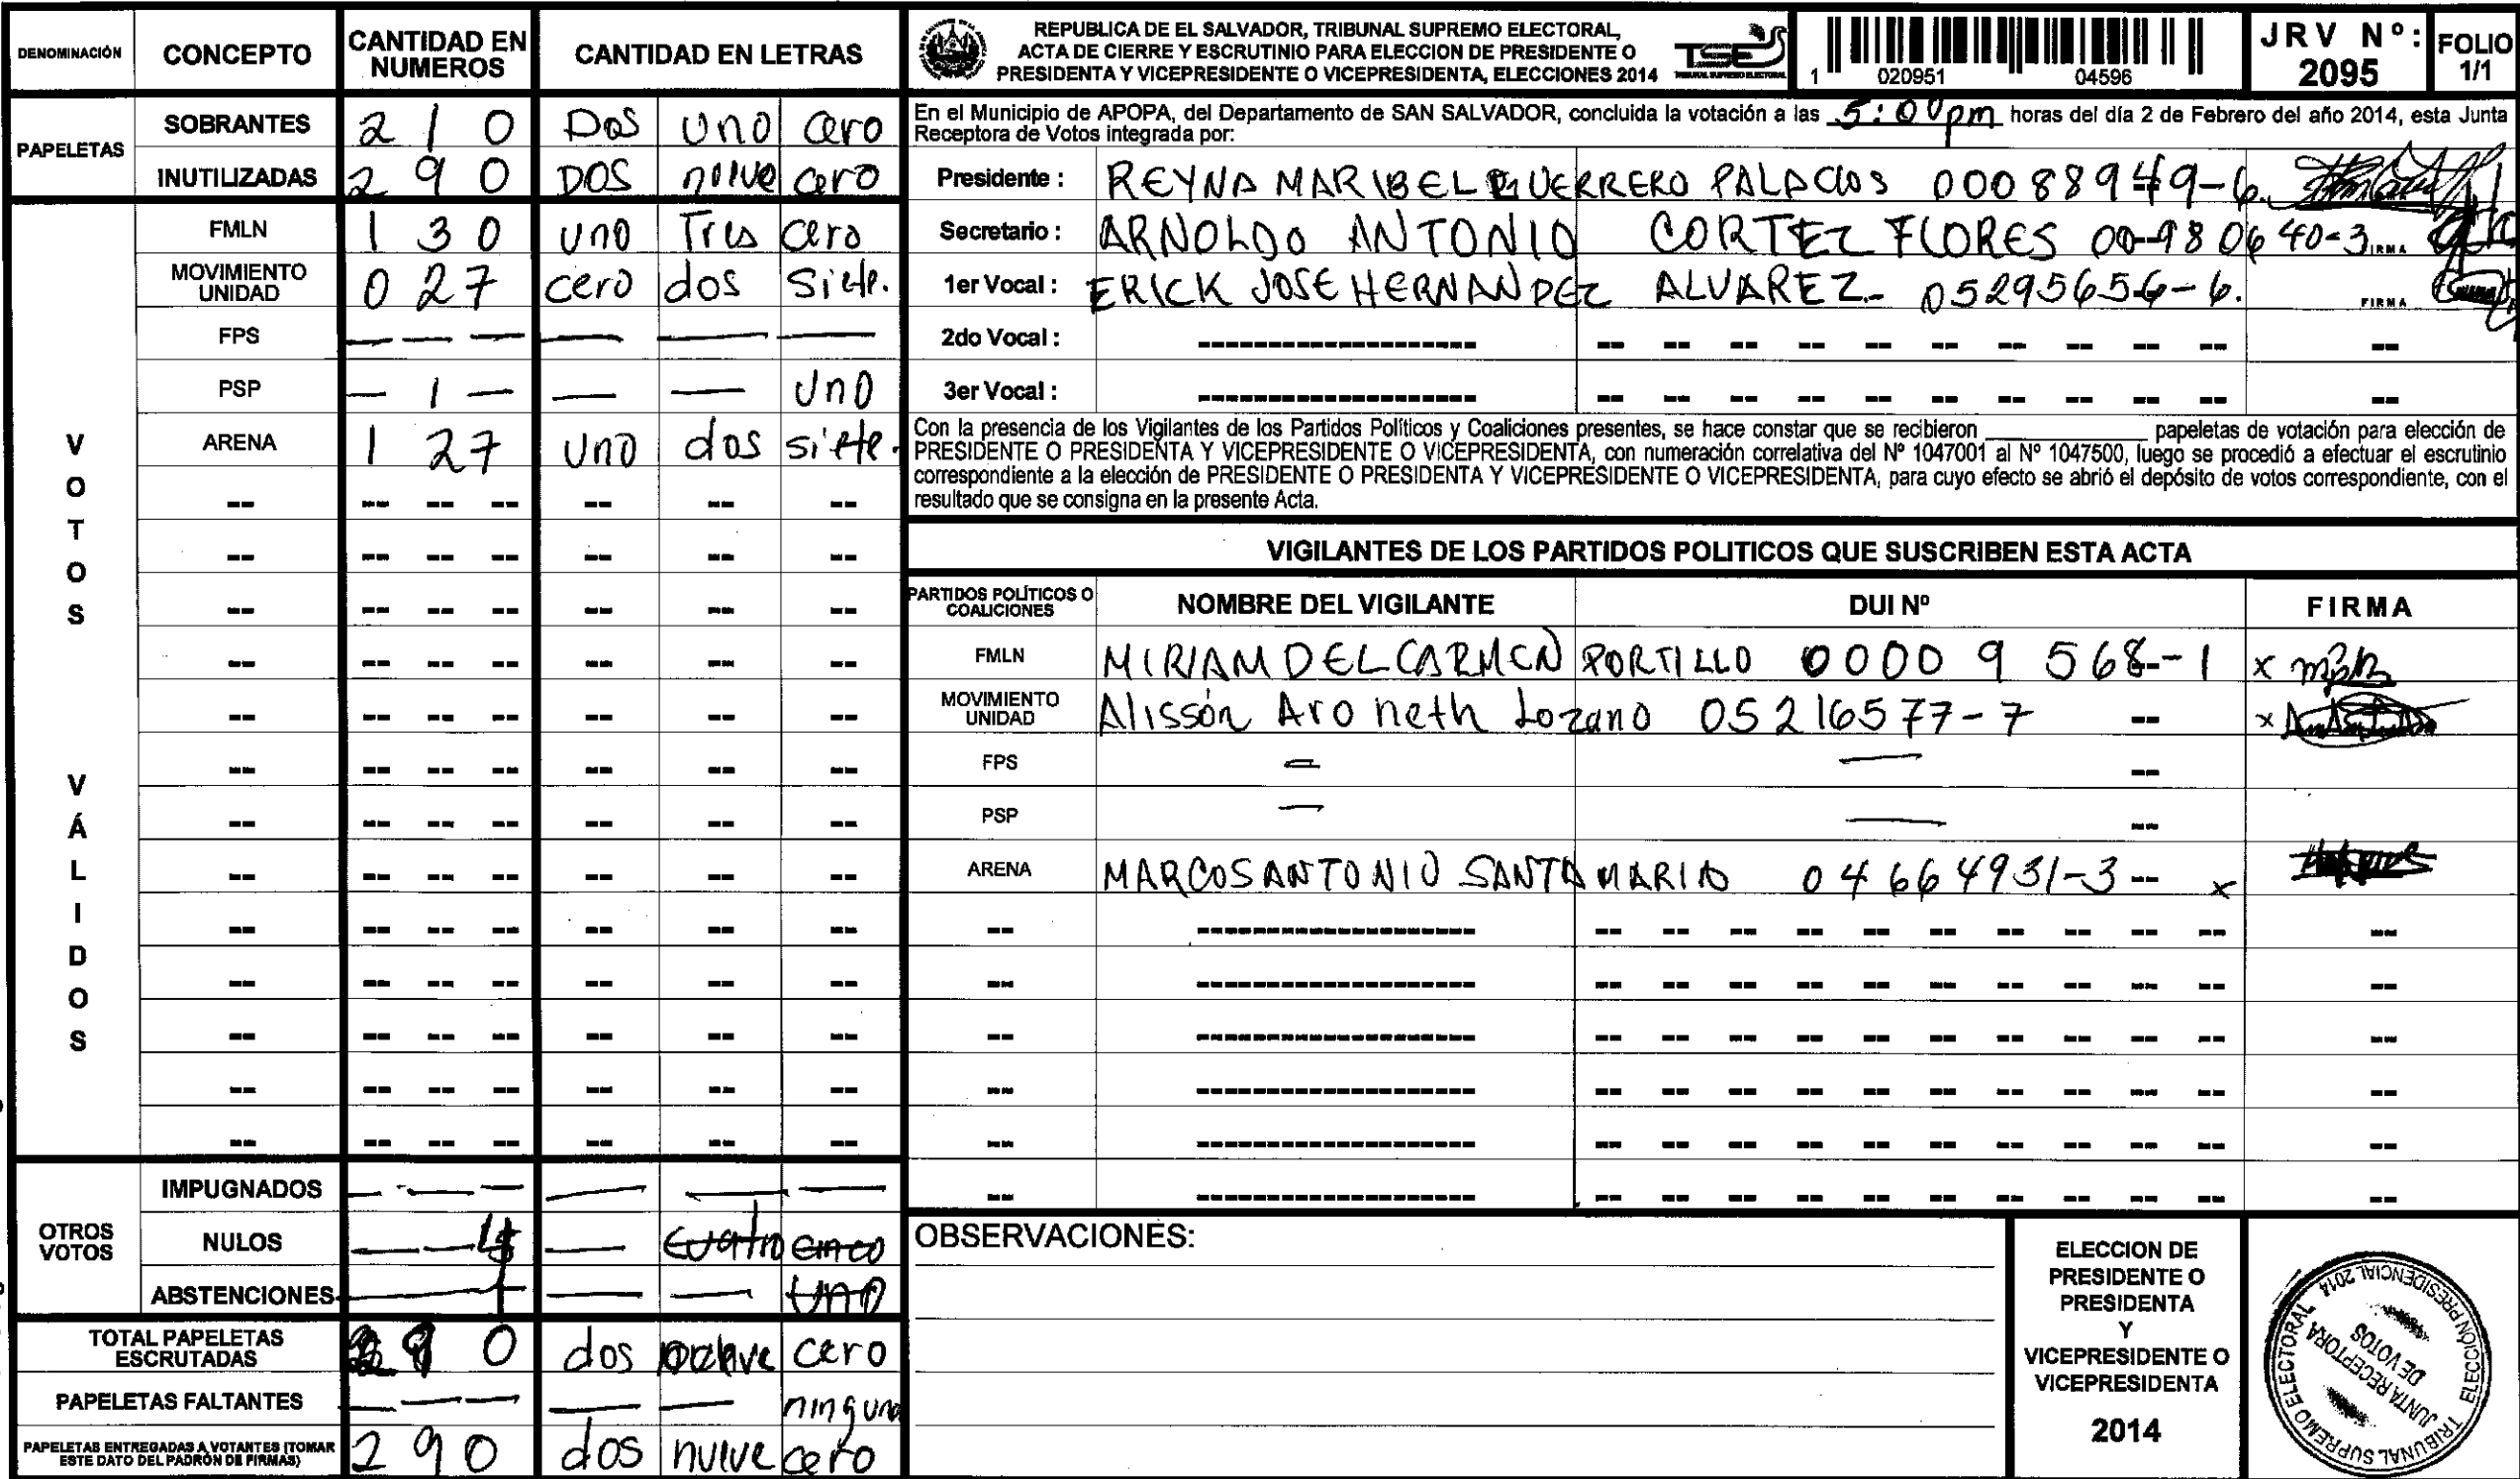 DENOMINACIÓN CONCEPTO CANTIDAD EN NUMEROS CANTIDAD EN LETRAS
PAPELETAS
SOBRANTES 2 1 0 Dos uno cero
INUTILIZADAS 2 9 0 DOS nueve cero
VOTOS VÁLIDOS
FMLN 1 3 0 uno Tres cero
MOVIMIENTO UNIDAD 0 2 7 cero dos siete.
FPS — — — — — —
PSP — 1 — — — uno
ARENA 1 2 7 uno dos siete.
OTROS VOTOS
IMPUGNADOS — — — — — —
NULOS — — 4 — cuatro cinco
ABSTENCIONES 1 — — uno
TOTAL PAPELETAS ESCRUTADAS 2 9 0 dos cero
PAPELETAS FALTANTES — — — — — ninguna
PAPELETAS ENTREGADAS A VOTANTES (TOMAR ESTE DATO DEL PADRÓN DE FIRMAS) 2 9 0 dos nueve cero
REPUBLICA DE EL SALVADOR, TRIBUNAL SUPREMO ELECTORAL,
ACTA DE CIERRE Y ESCRUTINIO PARA ELECCION DE PRESIDENTE O
PRESIDENTA Y VICEPRESIDENTE O VICEPRESIDENTA, ELECCIONES 2014
TSE
TRIBUNAL SUPREMO ELECTORAL
1 020951 04596
JRV Nº: 2095
FOLIO 1/1
En el Municipio de APOPA, del Departamento de SAN SALVADOR, concluida la votación a las 5:00pm horas del día 2 de Febrero del año 2014, esta Junta
Receptora de Votos integrada por:
Presidente : REYNA MARIBEL GUERRERO PALACIOS 00088949-6.
Secretario : ARNOLDO ANTONIO CORTEZ FLORES 00-980640-3 FIRMA
1er Vocal : ERICK JOSE HERNANDEZ ALVAREZ- 05295656-6. FIRMA
2do Vocal :
3er Vocal :
Con la presencia de los Vigilantes de los Partidos Políticos y Coaliciones presentes, se hace constar que se recibieron ________ papeletas de votación para elección de
PRESIDENTE O PRESIDENTA Y VICEPRESIDENTE O VICEPRESIDENTA, con numeración correlativa del Nº 1047001 al Nº 1047500, luego se procedió a efectuar el escrutinio
correspondiente a la elección de PRESIDENTE O PRESIDENTA Y VICEPRESIDENTE O VICEPRESIDENTA, para cuyo efecto se abrió el depósito de votos correspondiente, con el
resultado que se consigna en la presente Acta.
VIGILANTES DE LOS PARTIDOS POLITICOS QUE SUSCRIBEN ESTA ACTA
PARTIDOS POLÍTICOS O COALICIONES NOMBRE DEL VIGILANTE DUI Nº FIRMA
FMLN MIRIAM DEL CARMEN PORTILLO 00009568-1 x
MOVIMIENTO UNIDAD Alissón Aroneth Lozano 05216577-7 x
FPS — —
PSP — —
ARENA MARCOS ANTONIO SANTAMARIA 04664931-3 x
OBSERVACIONES:
ELECCION DE
PRESIDENTE O
PRESIDENTA
Y
VICEPRESIDENTE O
VICEPRESIDENTA
2014
TRIBUNAL SUPREMO ELECTORAL
ELECCIÓN PRESIDENCIAL 2014
JUNTA RECEPTORA
DE VOTOS